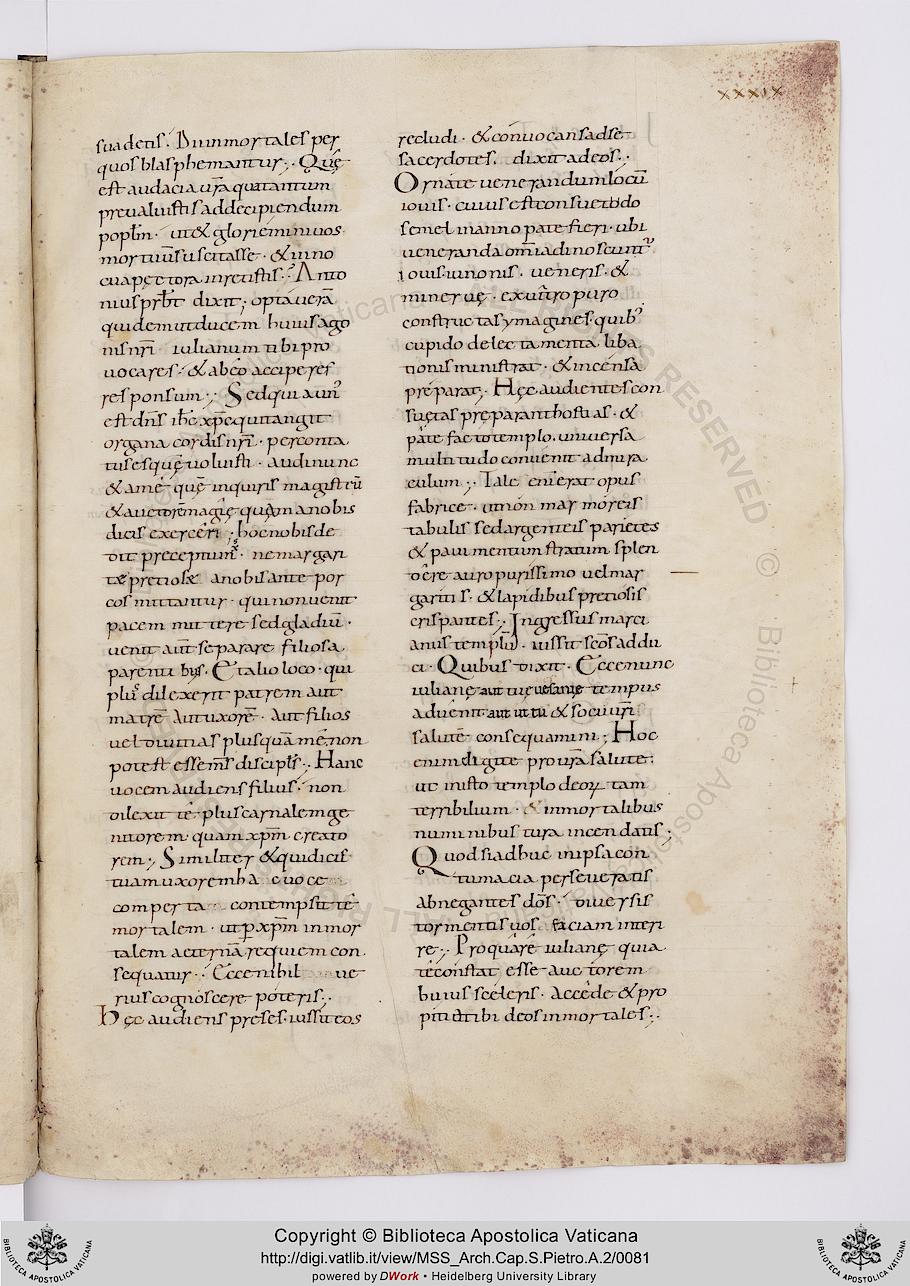 XXXIX
suadetis. Dii inmortales per
quos blasphemantur;. Quę
est audacia ur̃a qua tantum
preualuistis ad decipiendum
popl̃m. ut & gloriemini uos
mortuũ suscitasse. & in no
cua pęctora inretistis;. Anto
nius prb̃t dixit; optauerã
quidem ut ducem huius ago
nis nr̃i. iulianum tibi pro
uocares. & ab eo acciperes
responsum;. Sed quia un᷒
est dñs ihc̃ xp̃c qui tangit
organa cordis nr̃i. perconta
tus es quę uoluisti. audi nunc
& a me. quę inquiris magistrũ
& auctorẽ magię quam a nobis
dicis exerceri; hoc nobis de
dit preceptum. ne margari
tæ pretiosæ a nobis ante por
cos mittantur. qui non uenit
pacem mittere sed gladiũ.
uenit aũt separare filios a
parentibus. Et alio loco. qui
plus dilexerit patrem aut
matrẽ aut uxorẽ. aut filios
uel diuitias plusquã me, non
potest esse m̃s discipl̃s;. Hanc
uocem audiens filius. non
dilexit te plus carnalem ge
nitorem quam xp̃m creato
rem;. Similiter & quidicis
tuam uxorem ha c uoce
comperta contempsit te
mortalem. ut p xp̃m inmor
talem aeternã requiem con
sequatur;. Ecce nihil ue
rius cognoscere poteris;.
Hęc audiens preses. iussit eos
recludi. & conuocans ad se
sacerdotes. dixit ad eos;.
Ornate uenerandum locũ
iouis. cuius est consuetudo
semel in anno patefieri. ubi
ueneranda om̃ia dinoscunt᷒
iouis. iunonis. ueneris. &
mineruę. ex uitro puro
constructas ymagines. quib᷒
cupido delectamenta liba
tionis ministrat. & incensa
preparat;. Hęc audientes con
suętas pręparant hostias. &
patefacto templo. uniuersa
multitudo conuenit ad mira
culum;. Tale enĩ erat opus
fabrice. ut non marmoreis
tabulis sed argenteis parietes
& pauimentum stratum splen
dere auro purissimo uel mar
garitis. & lapidibus pretiosis
crispantes;. Ingressus marci
anus templũ. iussit scõs addu
ci. Quibus dixit. Ecce nunc
iulianę aut tuę uesanię tempus
aduenit aut ut tu & socii ur̃i
salutẽ consequamini; Hoc
enim digite pro ur̃a salute.
ut in isto templo deoꝝ tam
terribilium. & inmortalibus
numinibus tura incendatis;
Quod si adhuc in ipsa con
tumacia perseueratis
abnegantes do̅s. diuersis
tormentis uos faciam interi
re;. Proquare iulianę quia
te constat esse auctorem
huius sceleris. accede & pro
pitia tibi deos inmortales;.
Copyright © Biblioteca Apostolica Vaticana
http://digi.vatlib.it/view/MSS_Arch.Cap.S.Pietro.A.2/0081
powered by DWork • Heidelberg University Library